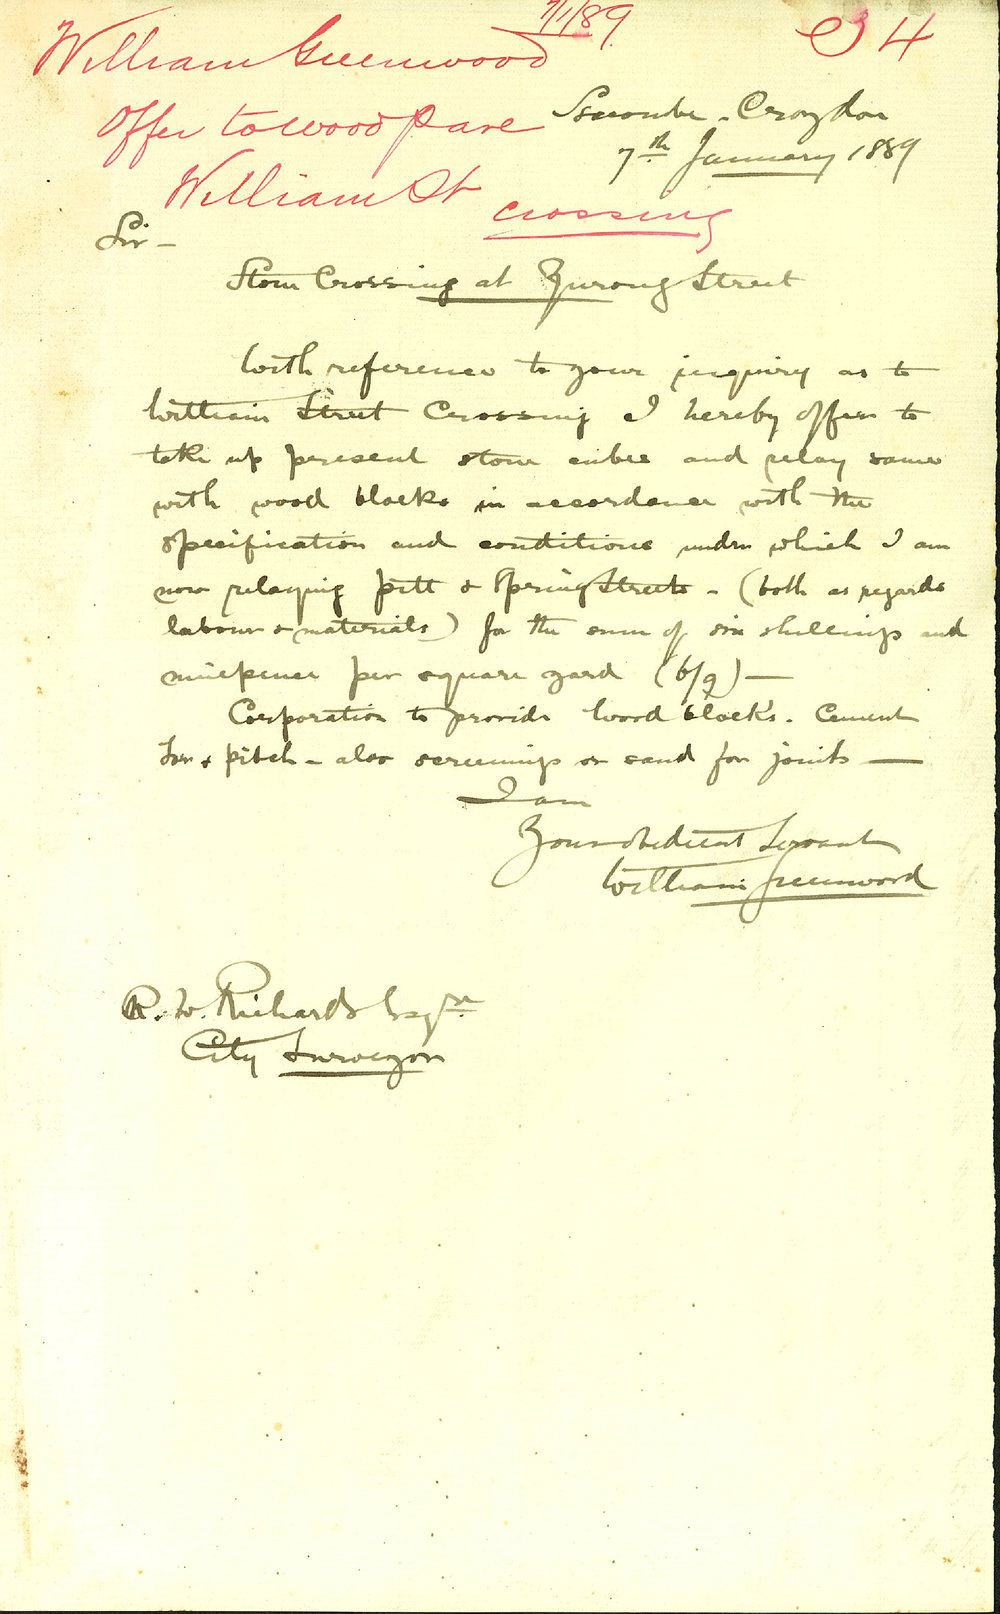 7/1/89
34
William Greenwood
Offer to wood pave
William St
crossing
Croydon
7th January 1889
Sir -
Stone Crossing at Yurong Street
With reference to your inquiry as to
William Street Crossing I hereby offer to
take up present stone cubes and relay same
with wood blocks in accordance with the
specification and conditions under which I am
now relaying pitt & Spring Streets - (both as regards
labour & materials) for the sum of six shillings and
ninepence per square yard (6/9) —
Corporation to provide wood blocks. Cement
Tar & pitch - also screenings or sand for joints —
I am
Your obedient Servant
William Greenwood
R. W. Richards Esqre
City Surveyor